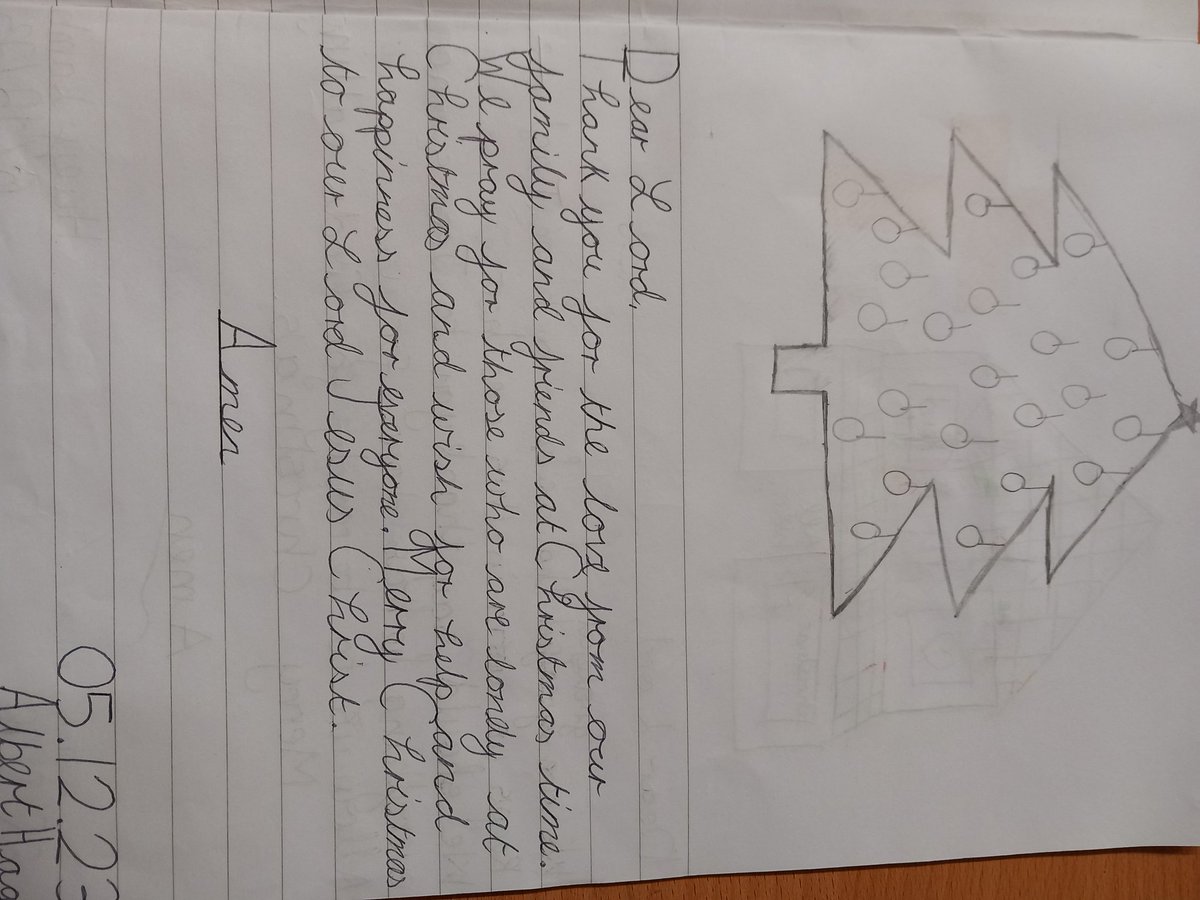 Dear Lord,
Thank you for the love from our
family and friends at Christmas time.
We pray for those who are lonely at
Christmas and wish for help and
happiness for everyone. Merry Christmas
to our Lord Jesus Christ.
Amen
05.12.22
Albert